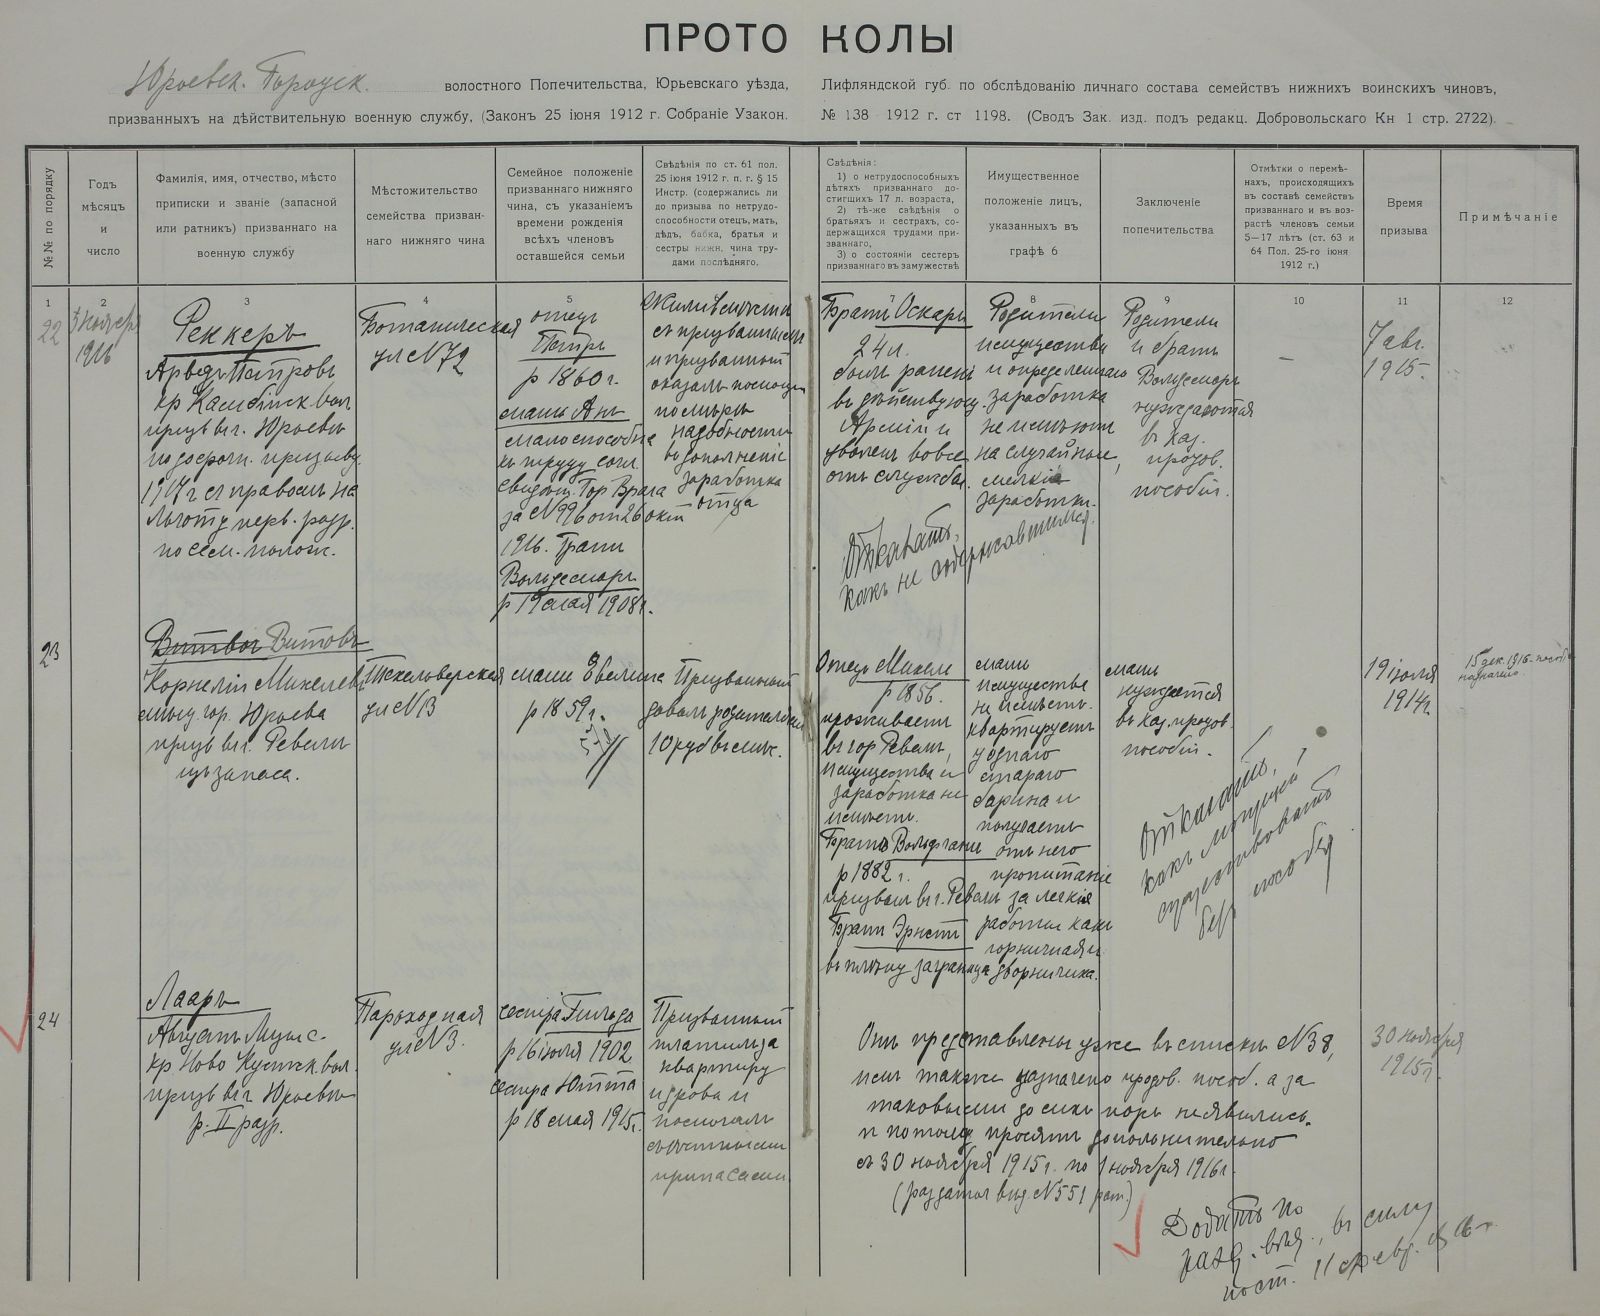 ПРОТОКОЛЫ
Юрьевск. Городск. волостного Попечительства, Юрьевскаго уѣзда, Лифляндской губ. по обслѣдованію личнаго состава семействъ нижнихъ воинскихъ чиновъ,
призванныхъ на дѣйствительную военную службу, (Законъ 25 іюня 1912 г. Собраніе Узакон. № 138 1912 г. ст 1198. (Сводъ Зак. изд. подъ редакц. Добровольскаго Кн 1 стр. 2722).
№№ по порядку
Годъ
мѣсяцъ
и
число
Фамилія, имя, отчество, мѣсто
приписки и званіе (запасной
или ратникъ) призваннаго на
военную службу
Мѣстожительство
семейства призван-
наго нижняго чина
Семейное положеніе
призваннаго нижняго
чина, съ указаніемъ
времени рожденія
всѣхъ членовъ
оставшейся семьи
Свѣдѣнія по ст. 61 пол.
25 іюня 1912 г. п. г. § 15
Инстр. (содержались ли
до призыва по нетрудо-
способности отецъ, мать,
дѣдъ, бабка, братья и
сестры нижн. чина тру-
дами послѣдняго.
Свѣдѣнія:
1) о нетрудоспособныхъ
дѣтяхъ призваннаго до-
стигшихъ 17 л. возраста,
2) тѣ-же свѣдѣнія о
братьяхъ и сестрахъ, со-
держащихся трудами при-
званнаго,
3) о состояніи сестеръ
призваннаго въ замужествѣ
Имущественное
положеніе лицъ,
указанныхъ въ
графѣ 6
Заключеніе
попечительства
Отмѣтки о перемѣ-
нахъ, происходящихъ
въ составѣ семействъ
призваннаго и въ воз-
растѣ членовъ семьи
5—17 лѣтъ (ст. 63 и
64 Пол. 25-го іюня
1912 г.)
Время
призыва
Примѣчаніе
1 2 3 4 5 6 7 8 9 10 11 12
22
ноября
1916
Реккеръ
Арведъ Петровъ
кр Камбійск. вол
призв в г. Юрьевѣ
по досрочн. призыву
1917 г съ правомъ на
льготу перв. разр.
по сем. полож.
Ботаническая
ул № 72
отец
Петръ
р 1860 г.
мать Анъ
малоспособна
къ труду согл.
свидѣт. Гор Врача
за № 996 от 26 окт
1916. Братъ
Вольдемаръ
р 19 мая 1908 г.
Жили вмѣстѣ
съ призваннымъ
и призванный
оказалъ помощь
по мѣрѣ
надобности
въ дополненіе
заработка
отца
Братъ Оскаръ
24 л.
былъ раненъ
въ дѣйствующ
Арміи и
уволенъ вовсе
отъ службы.
Родители
имущества
и опредѣленнаго
заработка
не имѣютъ
на случайные,
мелкіе
заработки.
Родители
и братъ
Вольдемаръ
нуждаются
въ каз.
продов.
пособіи.
—
7 авг.
1915.
Отказать,
какъ не содержавшимся.
23
Витвог Витовъ
Корнелій Михелевъ
мѣщ. гор. Юрьева
призв в г. Ревелѣ
изъ запаса.
Техельферская
ул № 13
мать Эвелина
р 1859 г.
57 л
Призванный
давалъ родителямъ
10 руб в мѣс.
Отецъ Михель
р 1856.
проживаетъ
въ гор Ревелѣ,
имущества и
заработка не
имѣетъ.
Братъ Вольфгангъ
р 1882 г.
призван в г. Ревелѣ
Братъ Эрнстъ
въ плѣну заграницей
мать
имущества
не имѣетъ.
квартируетъ
у одного
стараго
барина и
получаетъ
отъ него
пропитаніе
за легкія
работы какъ
горничная и
дворничиха.
мать
нуждается
въ каз. продов.
пособіи.
Отказать,
какъ могущей
существовать
безъ пособія
19 іюля
1914 г.
15 дек. 1916. пособіе
назначено
24
Лааръ
Августъ
кр Ново Кустск. вол.
призв в г Юрьевѣ
р. II разр.
Пароходная
ул № 3.
сестра Гильда
р 16 іюля 1902
сестра Ютта
р 18 мая 1915 г.
Призванный
платилъ за
квартиру
и дрова и
помогалъ
съѣстными
припасами
Онѣ представлены уже въ спискѣ № 38,
имъ также назначено продов. пособ. а за
таковыми до сихъ поръ не явились.
и потому просятъ дополнительно
съ 30 ноября 1915 г. по 1 ноября 1916 г.
(раздаточ вѣд. № 551 рат.)
30 ноября
1915 г.
Добавить по
разд. вѣд., въ силу
пост. 11 февр. 1916 г.